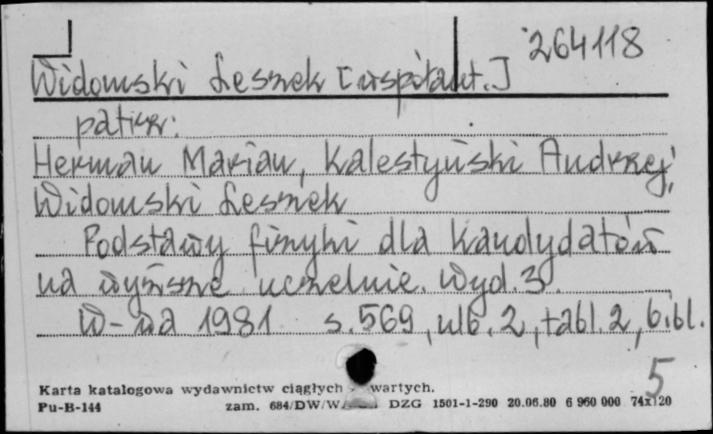 264118
Widomski Leszek [współaut.]
patrz:
Herman Marian, Kalestyński Andrzej,
Widomski Leszek
Podstawy fizyki dla kandydatów
na wyższe uczelnie. Wyd. 3.
W-wa 1981 s. 569, ulb. 2, tabl. 2, bibl.
5
Karta katalogowa wydawnictw ciągłych wartych.
Pu-B-144 zam. 684/DW/W DZG 1501-1-290 20.06.80 6 960 000 74x120